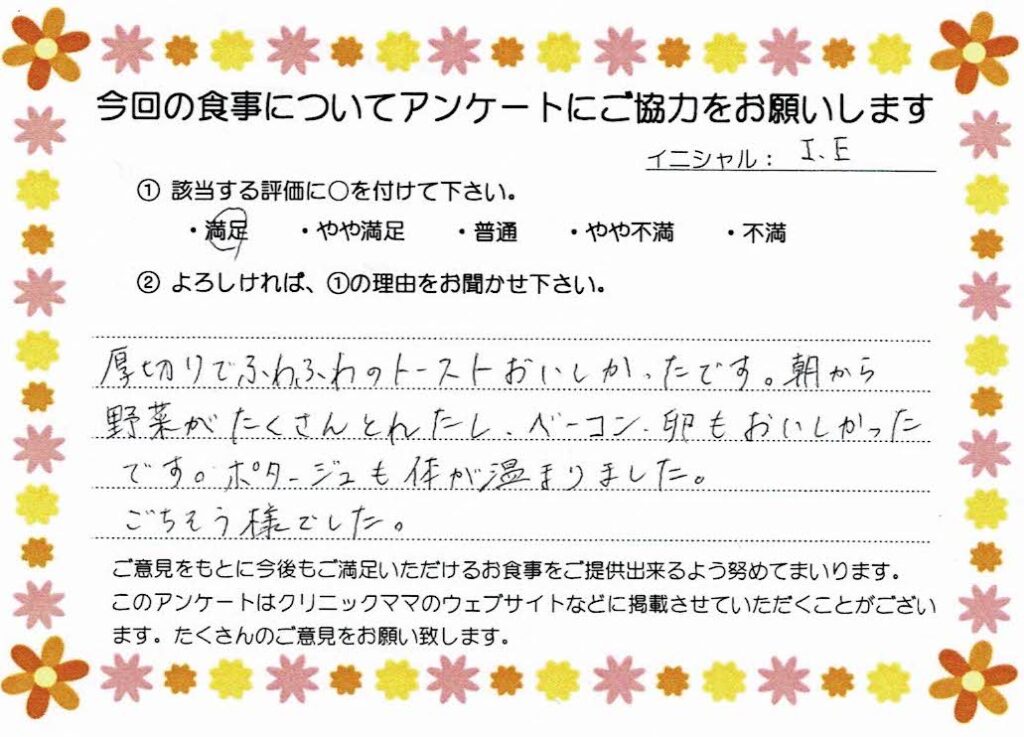 今回の食事についてアンケートにご協力をお願いします
イニシャル： I、E
① 該当する評価に〇を付けて下さい。
・満足 ・やや満足 ・普通 ・やや不満 ・不満
② よろしければ、①の理由をお聞かせ下さい。
厚切りでふわふわのトーストおいしかったです。朝から
野菜がたくさんとれたし、ベーコン、卵もおいしかった
です。ポタージュも体が温まりました。
ごちそう様でした。
ご意見をもとに今後もご満足いただけるお食事をご提供出来るよう努めてまいります。
このアンケートはクリニックママのウェブサイトなどに掲載させていただくことがござい
ます。たくさんのご意見をお願い致します。